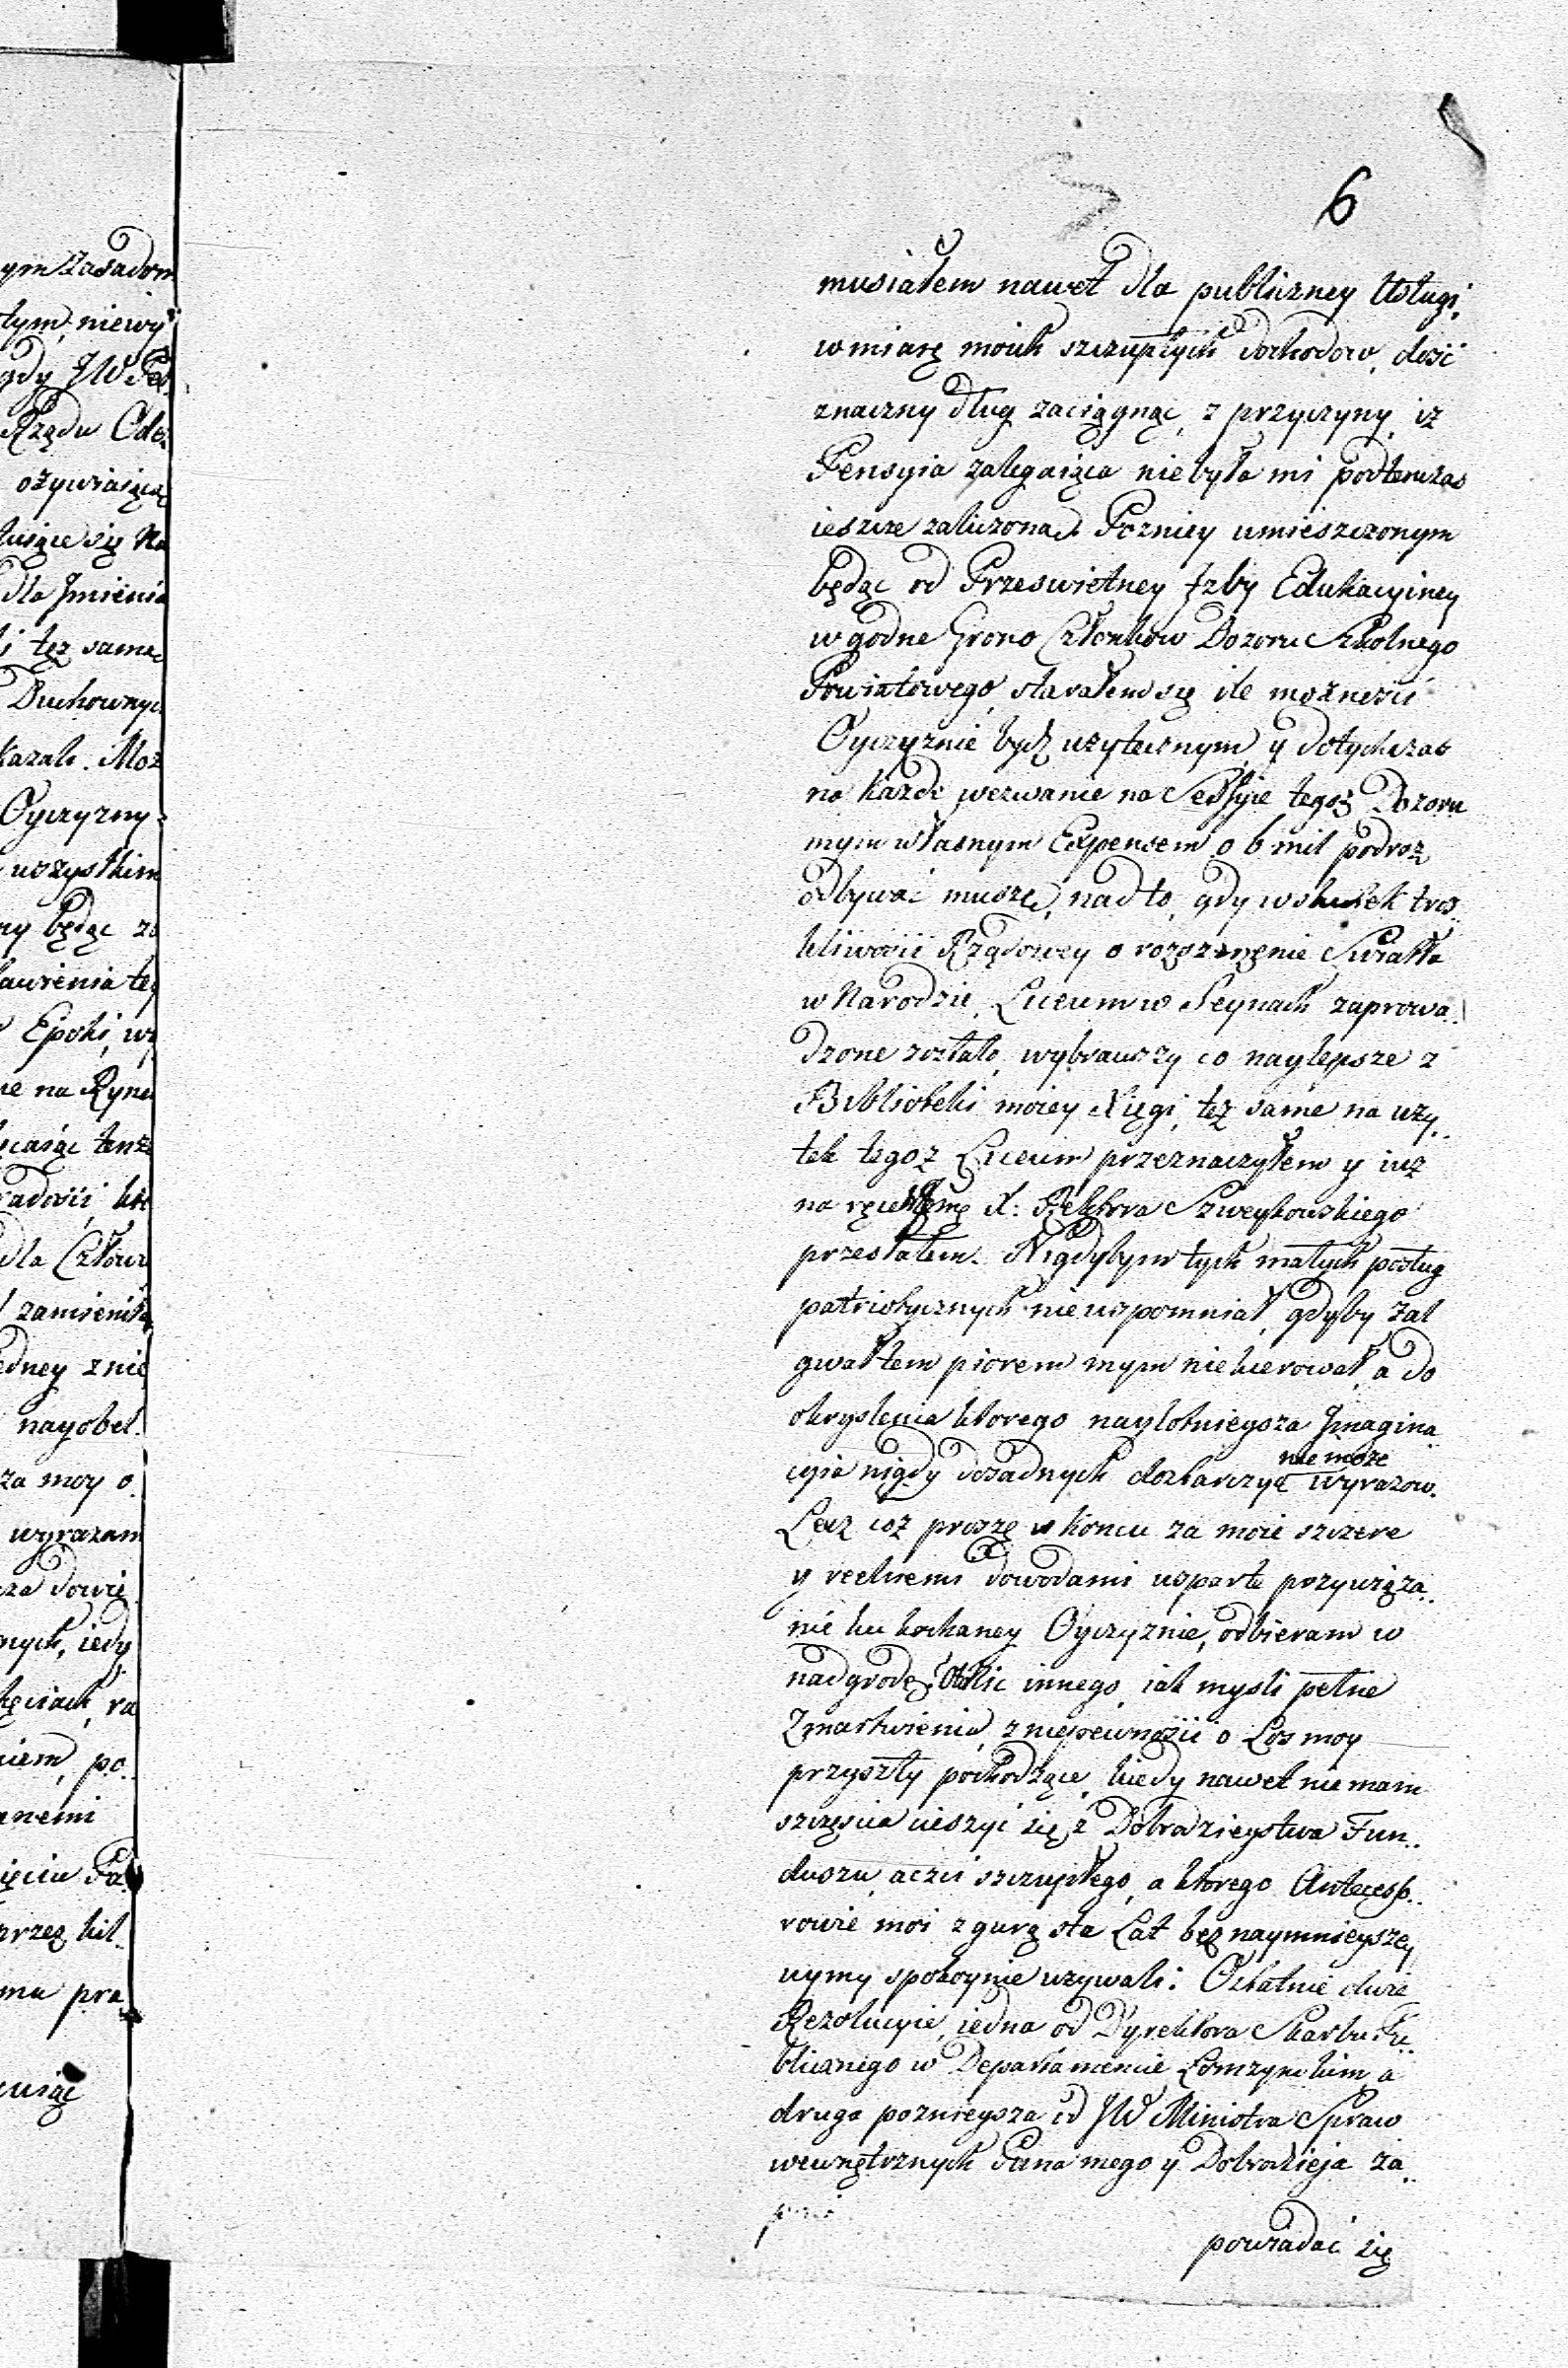 6
musiałem nawet dla publiczney Usługi,
w miarę moich szczupłych dochodow, dość
znaczny dług zaciągnąc, z przyczyny, iz
Pensyia zalegaiąca niebyła mi podtenczas
ieszcze zaliczona. Pozniey umieszczonym
będąc od Przeswietney Jzby Edukacyiney
w godne Grono Członkow Dozoru Szkolnego
Powiatowego, starałem się ile moznosci
Oyczyznie bydz uzytecznym, y dotychczas
na kazde wezwanie na Sessyie tegoz Dozoru
mym własnym Expensem o 6 mil podroz
odbywać muszę, nadto, gdy wskutek tros..
kliwosci Rządowey o rozszerzenie Swiatła
w Narodzie, Liceum w Seynach zaprowa..
dzone zostało, wybrawszy co naylepsze z
Biblioteki moiey Xięgi, tez same na uzy..
tek tegoz Liceum przeznaczyłem y iuz
na ręce X: Rektora Szweykowskiego
przesłałem. Nigdybym tych małych posług
patriotycznych niewspomniał, gdyby zal
gwałtem piorem mym niekierował, a do
okryslenia ktorego naylotnieysza Jmagina..
cyia nigdy dosadnych dostarczyć niemoze wyrazow.
Lecz coz proszę w koncu za moie szczere
y rzetelnemi dowodami wsparte przywiąza..
nie ku kochaney Oyczyznie, odbieram w
nadgrodę? Oto nic innego, iak mysli pełne
Zmartwienia, z niepewnosci o Los moy
przyszły pochodzące, kiedy nawet niemam
szczęscia cieszyć się z Dobrodzieystwa Fun..
duszu, aczci szczupłego, a ktorego Antecesso..
rowie moi z gurą sta Lat bez naymnieyszey
uymy spokoynie uzywali: Ostatnie dwie
Rezolucyie, iedna od Dyrektora Skarbu Pu..
blicznego w Departamencie Łomzynskim, a
druga poznieysza od JW Ministra Spraw
wewnętrznych Pana mego y Dobrodzieja za..
powiadać się
ym Zasadom
tym, niewy
gdy JW
Rządu
ozywiaiącą
dla Jmienia
i tez same
Duchownych
kazali. Moz
Oyczyzny
wszystkim
y będąc
Epoki, w
na Ryn
radosci
dla Człowi
zamieniła
edney z nie
nayobel.
za moy o.
wyrazam
za dowie
nych, iedy
niem, po..
przez kil.
ma pra